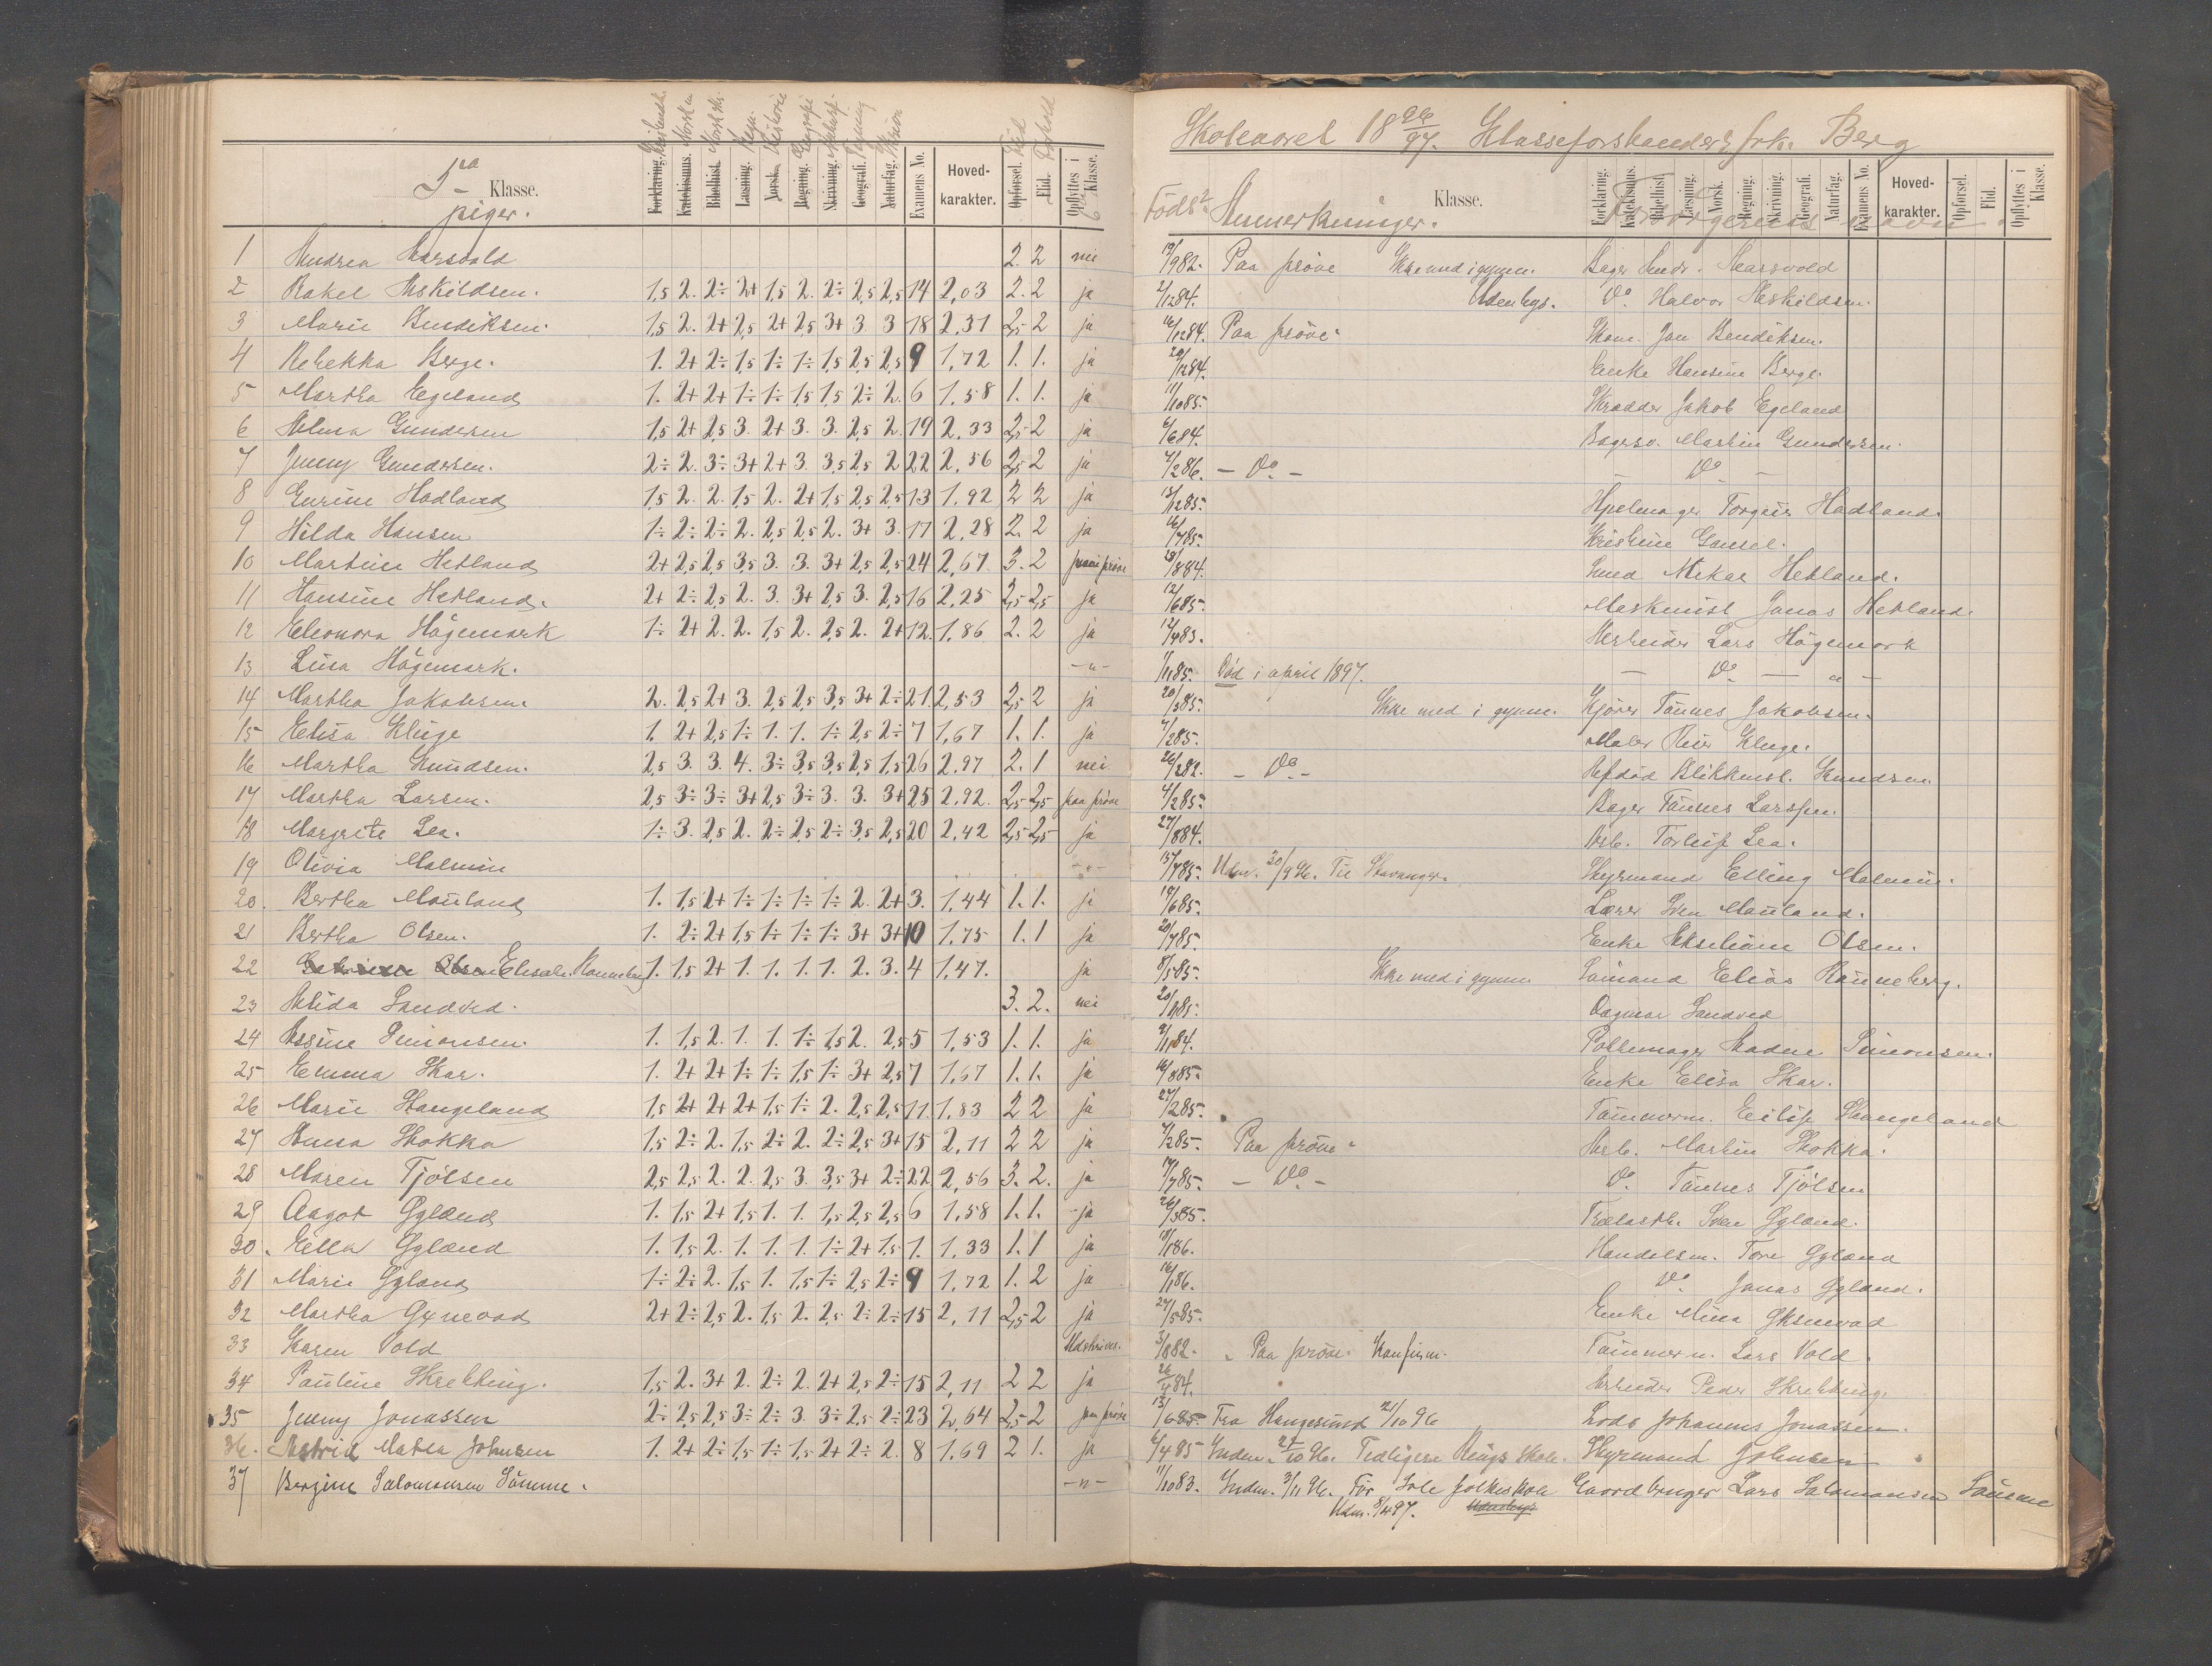 5ra Klasse.
piger.
Forklaring. Katekismus. Bibelhist. Læsning. Norsk. Regning. Skrivning. Geografi. Naturfag. Examens No. Hoved-karakter. Opførsel. Flid. Opflyttes i 6 Klasse.
1 Andrea Aarsvold 2. 2 nei
2 Rakel Askildsen. 1,5 2. 2÷ 2+ 1,5 2. 2÷ 2,5 2,5 14 2,03 2. 2 ja
3 Marie Bendiksen. 1,5 2. 2+ 2,5 2+ 2,5 3+ 3 3 18 2,31 2,5 2 ja
4 Rebekka Berge. 1. 2+ 2÷ 1,5 1÷ 1÷ 1,5 2,5 2,5 9 1,72 1. 1. ja
5 Martha Egeland 1. 2+ 2+ 1÷ 1÷ 1,5 1,5 2÷ 2. 6 1,58 1. 1. ja
6 Alma Gundersen 1,5 2+ 2,5 3. 2+ 3. 3. 2,5 2. 19 2,33 2,5 2 ja
7 Jenny Gundersen. 2÷ 2. 3÷ 3+ 2+ 3. 3,5 2,5 2 22 2,56 2,5 2 ja
8 Gurine Hadland 1,5 2. 2. 1,5 2. 2+ 1,5 2,5 2,5 13 1,92 2 2 ja
9 Hilda Hansen 1÷ 2÷ 2÷ 2. 2,5 2,5 2. 3+ 3. 17 2,28 2. 2 ja
10 Martine Hetland 2+ 2,5 2,5 3,5 3. 3. 3+ 2,5 2,5 24 2,67 3. 2 paa prøve
11 Hansine Hetland. 2+ 2÷ 2,5 2. 3. 3+ 2,5 3. 2,5 16 2,25 2,5 2,5 ja
12 Eleonora Högemark 1÷ 2+ 2. 2. 1,5 2. 2,5 2. 2+ 12. 1,86 2. 2 ja
13 Lina Högemark. -"-
14 Martha Jakobsen. 2. 2,5 2+ 3. 2,5 2,5 3,5 3+ 2÷ 21. 2,53 2,5 2 ja
15 Elisa Kluge 1. 2+ 2,5 1÷ 1. 1. 1÷ 2,5 2÷ 7 1,67 1. 1. ja
16 Martha Knudsen. 2,5 3. 3. 4. 3÷ 3,5 3,5 2,5 1,5 26 2,97 2. 1 nei
17 Martha Larsen. 2,5 3÷ 3÷ 3+ 2,5 3÷ 3. 3. 3+ 25 2,92. 2,5 2,5 paa prøve
18 Margrete Lea. 1÷ 3. 2,5 2. 2÷ 2,5 2÷ 3,5 2,5 20 2,42 2,5 2,5 ja
19 Olivia Malmin -"-
20. Bertha Mauland 1. 1,5 2+ 1÷ 1÷ 1÷ 1÷ 2. 2+ 3. 1,44 1. 1. ja
21 Bertha Olsen. 1. 2÷ 2+ 1,5 1÷ 1÷ 1÷ 3+ 3+ 10 1,75 1. 1 ja
22 Olsen Elisab. Ronneberg 1. 1,5 2+ 1. 1. 1. 1. 2. 3. 4 1,47. ja
23 Alida Sandved. 3. 2. nei
24 Assine Simonsen. 1. 1,5 2. 1. 1. 1÷ 1,5 2. 2,5 5 1,53 1. 1. ja
25 Emma Skar. 1. 2+ 2+ 1÷ 1÷ 1,5 1÷ 3+ 2,5 7 1,67 1. 1. ja
26 Marie Stangeland 1,5 2+ 2+ 2+ 1,5 1÷ 2. 2,5 2,5 11. 1,83 2 2 ja
27 Anna Stokka 1,5 2÷ 2. 1,5 2÷ 2. 2÷ 2,5 3+ 15 2,11 2 2 ja
28 Maren Tjölsen 2,5 2,5 2. 2. 2,5 3. 3,5 3+ 2÷ 22 2,56 3. 2. ja
29 Aagot Ggland 1. 1,5 2+ 1,5 1. 1. 1,5 2,5 2,5 6 1,58 1. 1. ja
30. Ella Ggland 1. 1,5 2. 1. 1. 1. 1÷ 2+ 1,5 1. 1,33 1. 1 ja
31 Marie Ggland 1÷ 2÷ 2. 1,5 1. 1,5 1÷ 2,5 2÷ 9 1,72 1. 2 ja
32 Martha Gxnevad 2+ 2÷ 2,5 2. 1,5 2. 2,5 2÷ 2÷ 15 2,11 2,5 2 ja
33 Karen Vold Udskrives.
34 Pauline Skrebling. 1,5 2. 3+ 2. 2÷ 2. 2+ 2,5 2÷ 15 2,11 2 2 ja
35 Jenny Jonassen 2÷ 2,5 2,5 3÷ 2÷ 3. 3÷ 2,5 2÷ 23 2,64 2,5 2 paa prøve
36. Astrid Matea Johnsen 1. 2+ 2÷ 1,5 1÷ 1,5 2+ 2÷ 2. 8 1,69 2 1. ja
37 Bergine Salomonsen Sömme. -"-
Skoleaaret 1896/97. Klasseforstander: frk. Berg
Født? Anmerkninger. Klasse. Forsörgerens navn.
Forklaring. Katekismus. Bibelhist. Læsning. Norsk. Regning. Skrivning. Geografi. Naturfag. Examens No. Hoved-karakter. Opførsel. Flid. Opflyttes i Klasse.
19/9 82. Paa pröve Ikke med i gymn. Bager Andr. Aarsvold
2/12 84. Udenbys. Do Halvor Askildsen.
16/12 84. Paa pröve. Skom. Jan Bendiksen.
20/12 84. Enke Hansine Berge.
11/10 85. Skrædder Jakob Egeland
6/6 84. Bagersv. Martin Gundersen.
4/2 86. - Do - - Do -
13/12 85. Torgeir Hadland.
16/7 85. Kristine Gausel.
28/8 84. Smed Mikal Hetland.
12/6 85. Maskinist Jonas Hetland.
12/4 83. Arbeider Lars Högemark
1/11 85. Död i april 1897. - Do - " -
20/5 85. Ikke med i gymn. Kjører Tönnes Jakobsen.
7/2 85. Maler Kluge.
26/2 82. - Do - Afdöd Blikkensl. Knudsen.
4/2 85. Bager Tönnes Larssen.
27/8 84. Arb. Torleif Lea.
15/7 85. Udm. 30/9 96. Til Stavanger. Styrmand Elling Malmin.
19/6 85. Lærer Sven Mauland.
20/7 85. Enke Olsen.
8/5 85. Ikke med i gymn. Lömand Elias Rönneberg.
20/1 85. Dagmar Sandved
9/11 84. Pottemager Simonsen.
16/8 85. Enke Elisa Skar.
27/2 85. Tömmerm. Eilif Stangeland
7/2 85. Paa pröve. Arb. Martin Stokka.
17/7 85. - Do - Do. Tönnes Tjölsen
26/3 85. Trælasth. Sven Ggland.
18/1 86. Handelsm. Tore Ggland
16/1 86. Do. Jonas Ggland.
24/5 85. Enke Mina Gksnevad
3/1 82. Paa pröve. Konfirm. Tömmerm. Lars Vold.
26/4 84. Arbeider Peder Skrebling.
13/6 85. Fra Haugesund 21/10 96 Lods Johannes Jonassen.
6/4 85 Indm. 27/10 96. Tidligere Kings Skole. Styrmand Johnsen
11/10 83. Indm. 3/11 96. För Sole folkeskole Gaardbruger Lars Salomonsen Sömme
Udm. 8/4 97. Udenbys